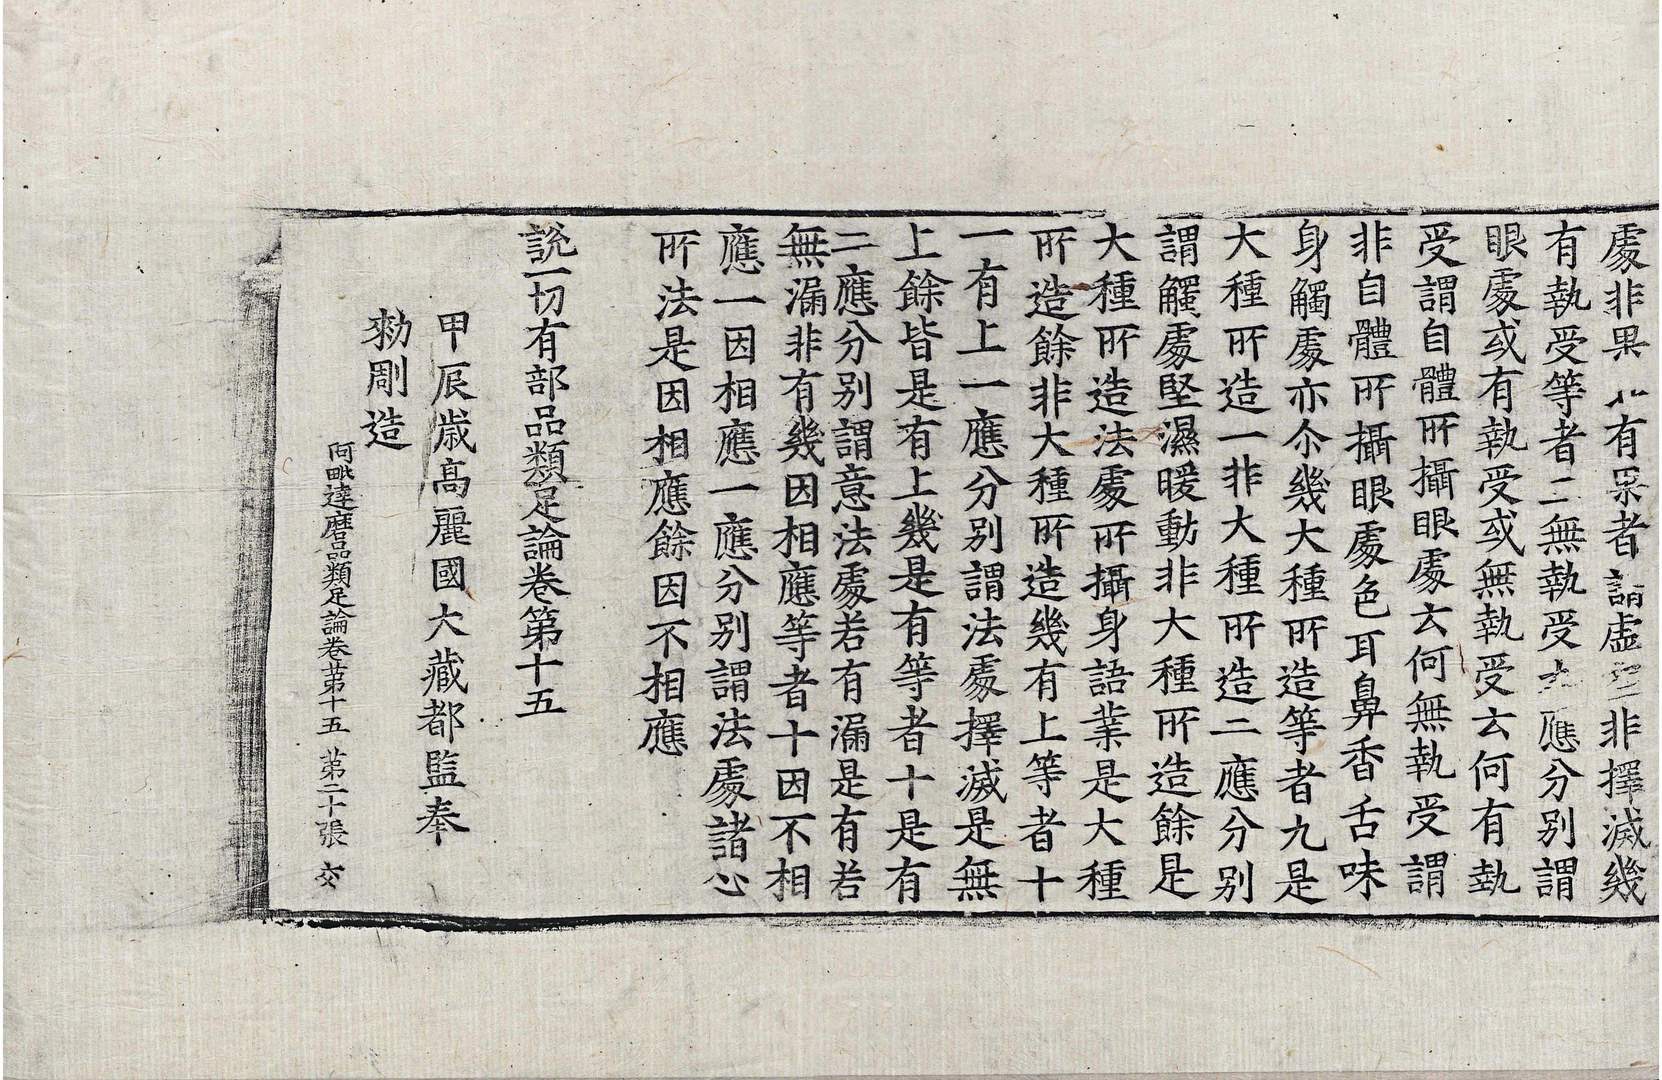 處非果非有果者謂虛空非擇滅幾
有執受等者二無執受九應分別謂
眼處或有執受或無執受云何有執
受謂自體所攝眼處云何無執受謂
非自體所攝眼處色耳鼻香舌味
身觸處亦尒幾大種所造等者九是
大種所造一非大種所造二應分別
謂觸處堅濕暖動非大種所造餘是
大種所造法處所攝身語業是大種
所造餘非大種所造幾有上等者十
一有上一應分別謂法處擇滅是無
上餘皆是有上幾是有等者十是有
二應分別謂意法處若有漏是有若
無漏非有幾因相應等者十因不相
應一因相應一應分別謂法處諸心
所法是因相應餘因不相應
說一切有部品類足論卷第十五
甲辰歲高麗國大藏都監奉
勑彫造
阿毗達磨品類足論卷苐十五 苐二十張 交